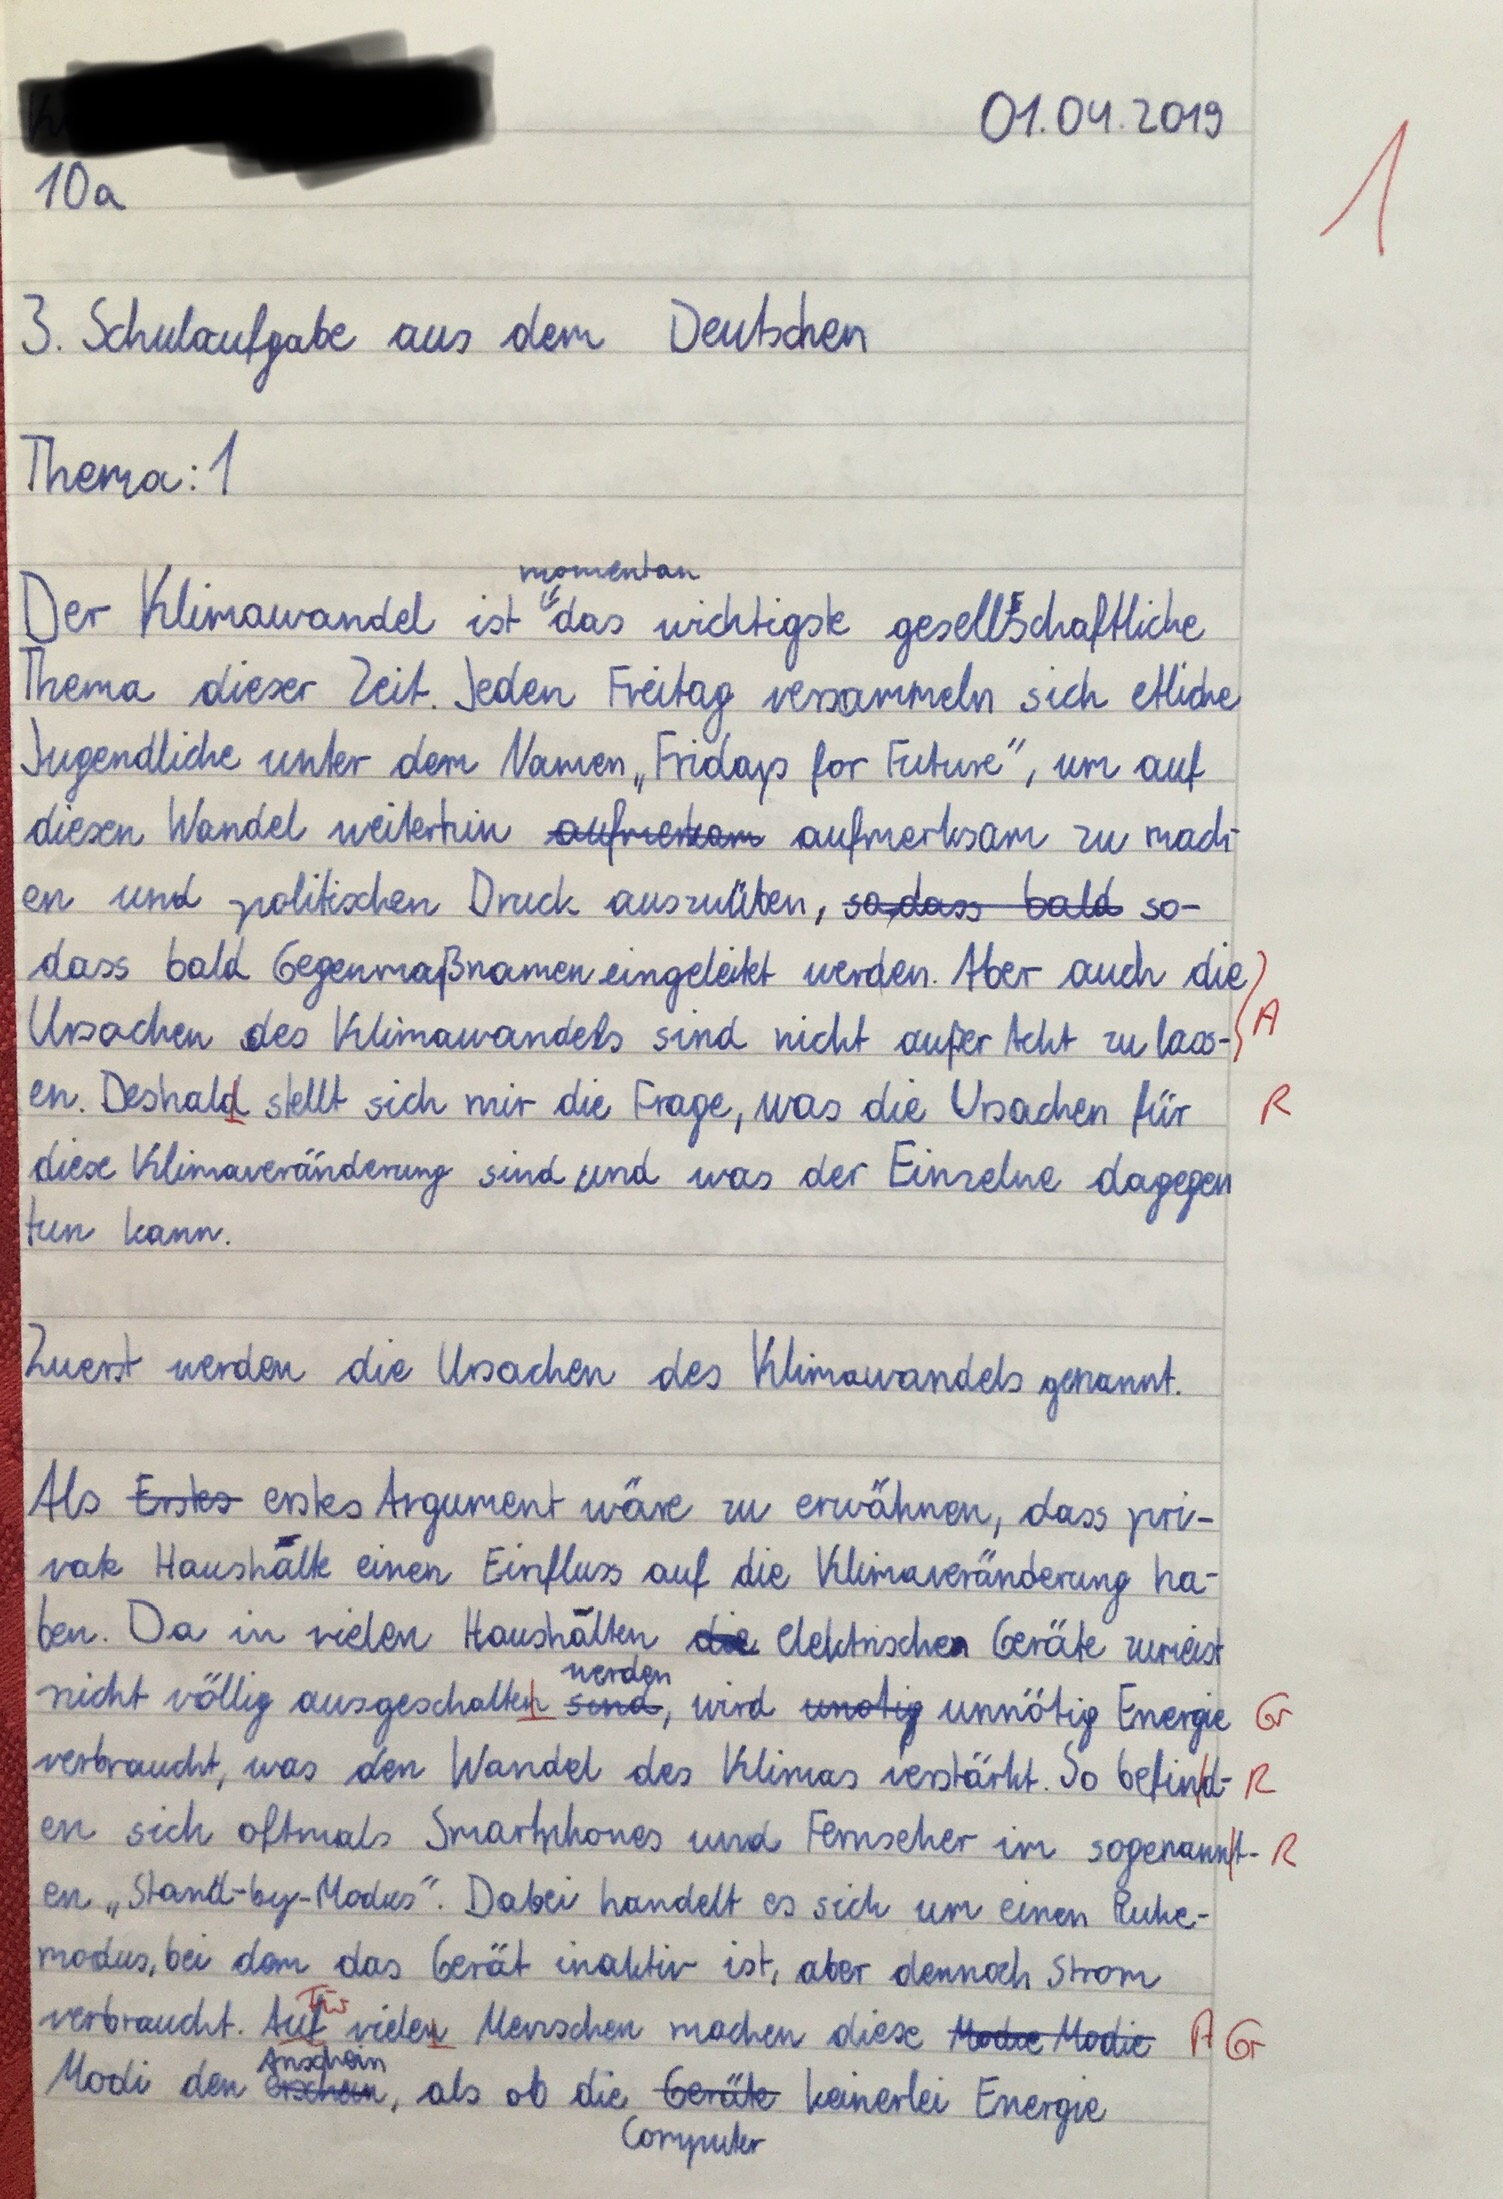 01.04.2019
1
10a
3. Schulaufgabe aus dem Deutschen
Thema: 1
momentan
Der Klimawandel ist das wichtigste gesellschaftliche
Thema dieser Zeit. Jeden Freitag versammeln sich etliche
Jugendliche unter dem Namen „Fridays for Future“, um auf
diesen Wandel weiterhin aufmerksam zu mach-
en und politischen Druck auszuüben, sodass bald so-
dass bald Gegenmaßnamen eingeleitet werden. Aber auch die
Ursachen des Klimawandels sind nicht außer Acht zu lass- A
en. Deshald stellt sich mir die Frage, was die Ursachen für R
diese Klimaveränderung sind und was der Einzelne dagegen
tun kann.
Zuerst werden die Ursachen des Klimawandels genannt.
Als Erstes erstes Argument wäre zu erwähnen, dass pri-
vate Haushälte einen Einfluss auf die Klimaveränderung ha-
ben. Da in vielen Haushälten die elektrischen Geräte zumeist
werden
nicht völlig ausgeschalten sind, wird unotig unnötig Energie Gr
verbraucht, was den Wandel des Klimas verstärkt. So befind- R
en sich oftmals Smartphones und Fernseher im sogenannt- R
en „Stand-by-Modus“. Dabei handelt es sich um einen Ruhe-
modus, bei dem das Gerät inaktiv ist, aber dennoch Strom
Für
verbraucht. Auf vielen Menschen machen diese Modie A Gr
Anschein
Modi den erschein, als ob die Geräte keinerlei Energie
Computer